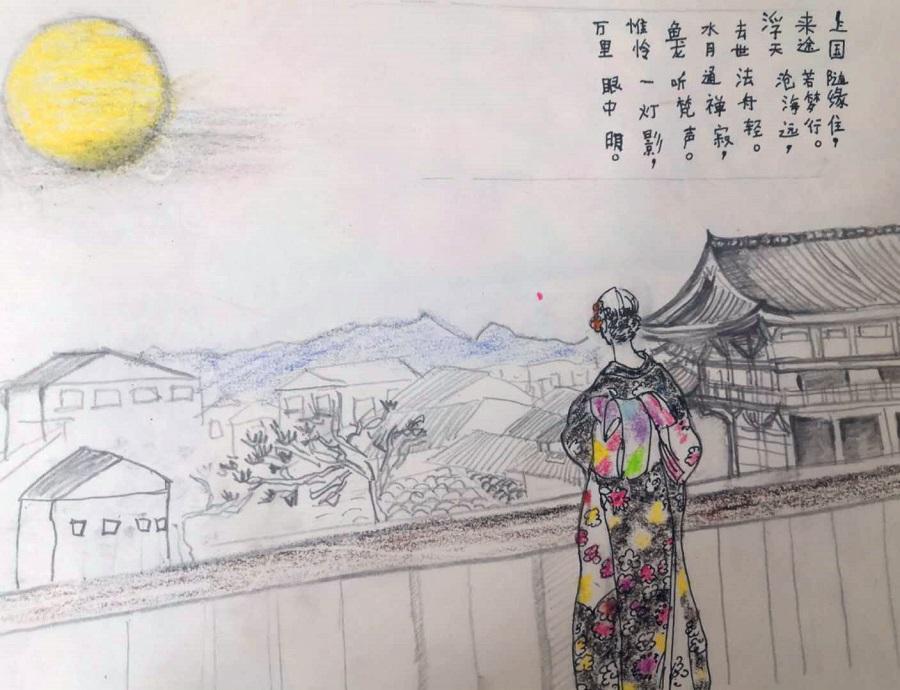 上国随缘住，
来途若梦行。
浮天沧海远，
去世法舟轻。
水月通禅寂，
鱼龙听梵声。
惟怜一灯影，
万里眼中明。